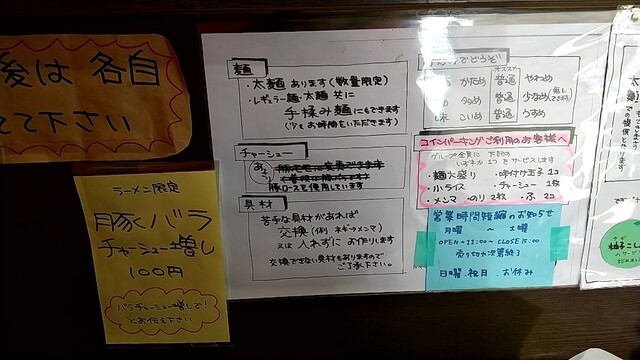 後は 各自
て下さい
ラーメン限定
豚バラ
チャーシュー増し
100円
バラチャーシュー増しで!
とお伝え下さい
麺
・太麺 あります(数量限定)
・レギュラー麺・太麺 共に
手揉み麺にもできます
(少しお時間をいただきます)
チャーシュー
豚ロースを使用しています
具材
苦手な具材があれば
交換(例 ネギ→メンマ)
又は 入れずに お作りします
交換できない具材もありますので
ご了承下さい。
でどうぞ
かため 普通 やわめ
普通 少なめ
こいめ 普通 うすめ
コインパーキングご利用のお客様へ
グループ全員に 下記の
いずれか 1つ をサービスします
・麺大盛り ・味付け玉子 1コ
・小ライス ・チャーシュー 1枚
・メンマ ・のり 2枚 ・ふ 2コ
営業時間短縮のお知らせ
月曜 〜 土曜
OPEN 11:00〜 CLOSE 15:00
売り切れ次第終了
日曜.祝日.お休み
柚子こし